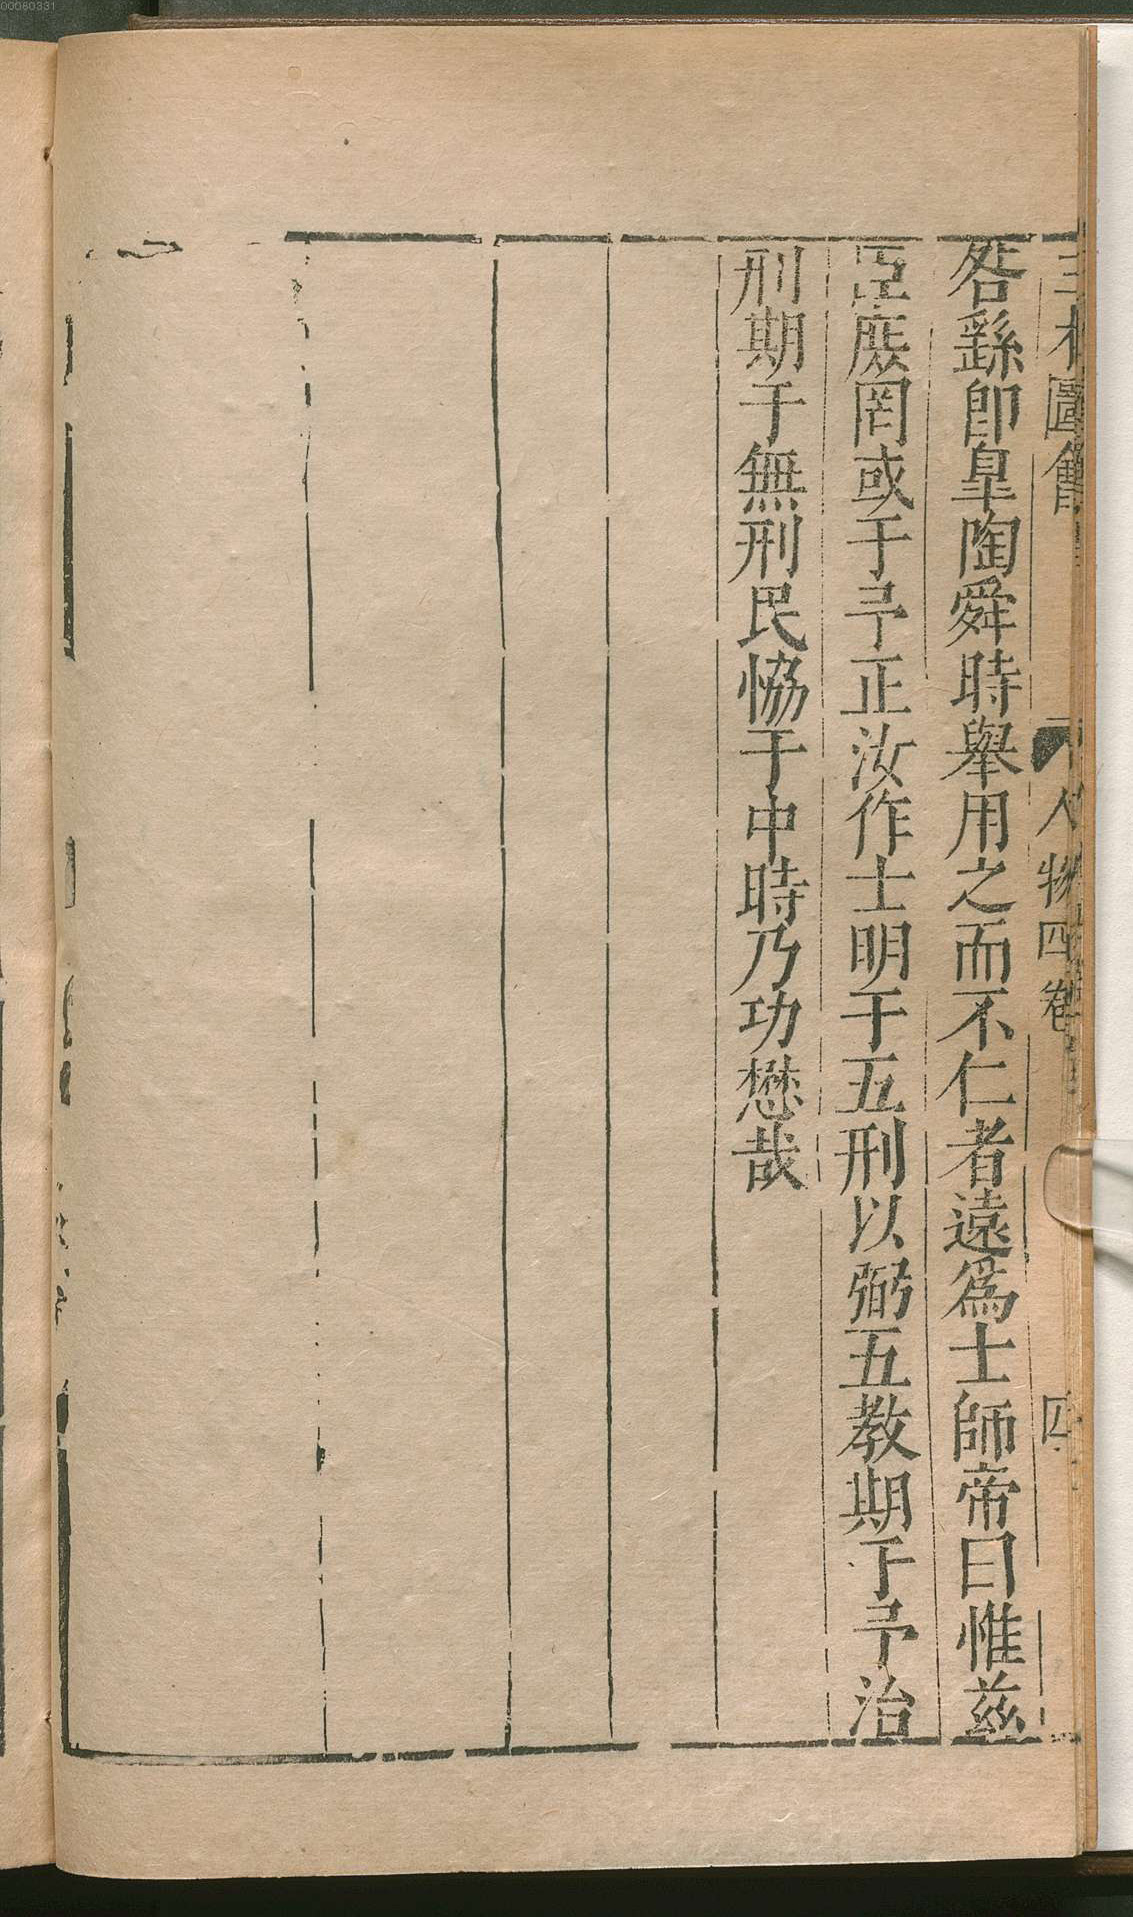 三才圖會 人物四卷 四
咎繇卽皐陶舜時舉用之而不仁者遠爲士師帝曰惟茲
臣庶罔或于予正汝作士明于五刑以弼五教期于予治
刑期于無刑民恊于中時乃功懋哉
00060331